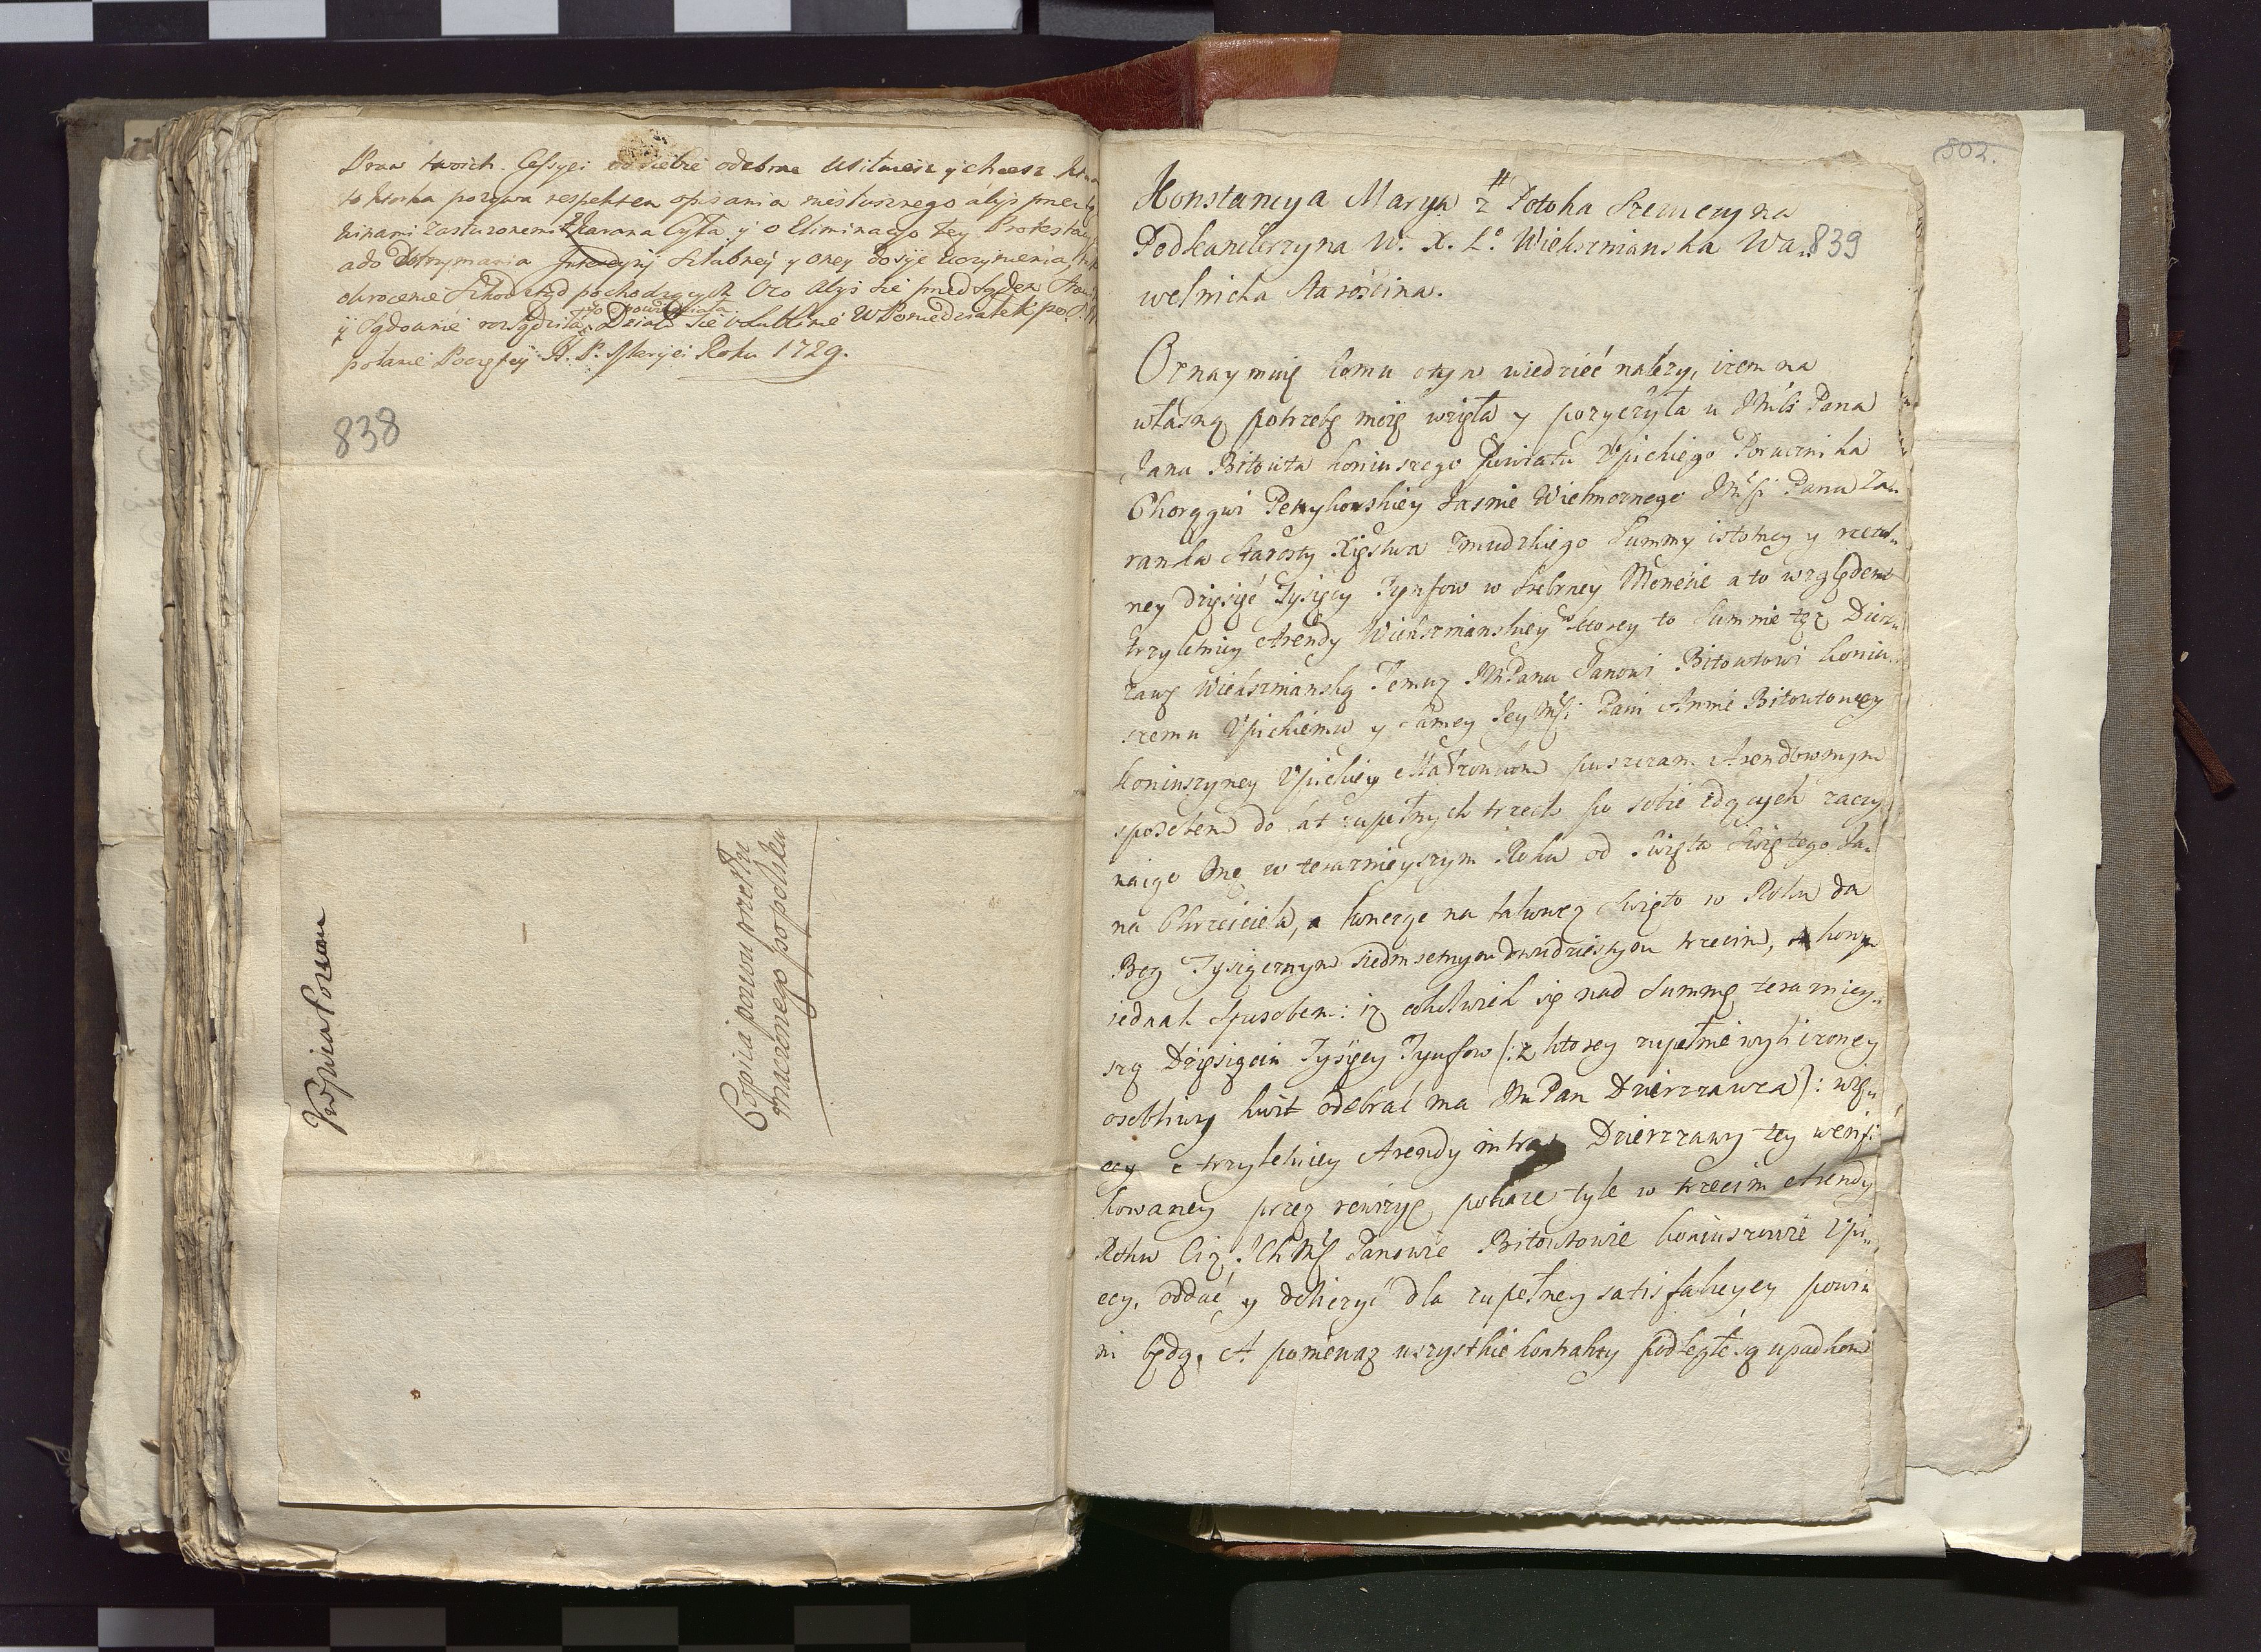 Praw twoich Cessyei od siebie odebrac usiłuiesz y chcesz
to ktorka pozywa respektem opisania niesłusznego abyś przez
winami zasłuzonemi karana była y o Eliminacyo tey Protestacy
ado Dotrzymania słubney y oney dosyc uczynienia,
okrocenie szkod ztąd pochodzących Oco abyś sie przed Sądem
y Sądownie rozsądziła Działo sie w Lublinie W Poniedziałek po
połanie Poczętej N. P. Maryei Roku 1729.
838
Copiia pozwu przetłu
maczonego po polsku
502.
Konstancya Marya z Potoka Szczuczyna
Podkanclerzyna W. X. L. Wieksznianska Wa„
839
welnicka Starościna.
Oznaymuię komu otym wiedzieć nalezy, izem na
własną potrzebę moię wzięła y pozyczyła u JMści Pana
Jana Bitowta koniuszego Powiatu Upickiego Porucznika
Chorągwi Petyhorskiey Jasnie Wielmoznego JMści Pana Za„
ranka Starosty Xięstwa Zmudzkiego Summy istotney y rzetel„
ney dziesięć Tysięcy Tynfow w srebrney Monecie a to względem
trzyletniey Arendy Wiekszniańskiey w ktorey to Summie tęz Dzier„
zawę Wieksznianską Temuz JMPanu Janowi Bitowtowi koniu„
szemu Upickiemu y Samey Jey Mści Pani Annie Bitowtowey
koniuszyney Upickiey Małzonkom puszczam Arendownym
sposobem do lat zupełnych trzech po sobie idących zaczy„
naiąc Onę w terazniejszym Roku od Swięta Swiętego Ja„
na Chrzciciela, a kończąc na takowez Swięto w Roku da
Bog Tysiącznym siedmsetnym dwudziestym trzecim, takowym
iednak sposobem: iz cokolwiek się nad Summę terazniey„
szą Dziesięciu Tysięcy Tynfow (: z ktorey zupełnie wyliczoney
osobliwy kwit odebrał ma JmPan Dzierzzawca ): wię„
cey z trzyletniey Arendy intraty Dzierzzawy tey weryfi
kowaney przez rewizyę pokaze tyle w trzecim Arendy
Roku Ciz IchMść Panowie Bitowtowie koniuszowie Upi„
ccy, oddać y doliczyć dla zupełney satisfakcyey powin
ni będą. A poniewaz wszystkie kontrakty podległe są upadkom